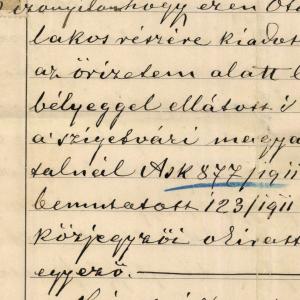 bizonyitom hogy ezen
lakos részére kiadott
az őrizetem alatt
bélyeggel ellátott
a szigetvári magya
talnál Ask 877/1911
bemutatott 123/1911
közjegyzői okirat
egyező.